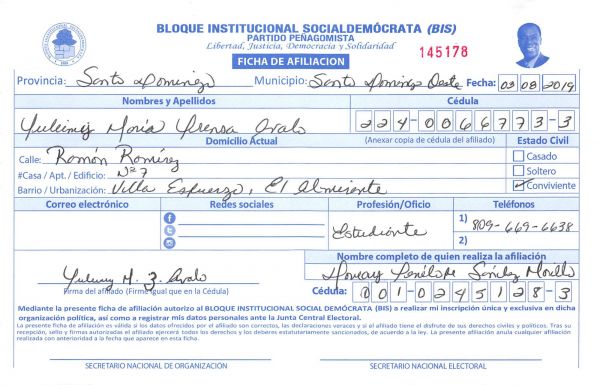 BLOQUE INSTITUCIONAL SOCIALDEMÓCRATA (BIS)
PARTIDO PEÑAGOMISTA
Libertad, Justicia, Democracia y Solidaridad
FICHA DE AFILIACION
145178
Provincia: Santo Domingo Municipio: Santo Domingo Oeste Fecha: 03 08 2019
Nombres y Apellidos Cédula
María 224-0066773-3
Domicilio Actual (Anexar copia de cédula del afiliado) Estado Civil
Calle: Ramón Ramírez Casado
#Casa / Apt. / Edificio: Nº 7 Soltero
Barrio / Urbanización: Villa Esfuerzo, El Almirante Conviviente
Correo electrónico Redes sociales Profesión/Oficio Teléfonos
Estudiante 1) 809-669-6638
2)
Nombre completo de quien realiza la afiliación
Penélope Sánchez Morillo
Firma del afiliado (Firme igual que en la Cédula) Cédula: 001-0245128-3
Mediante la presente ficha de afiliación autorizo al BLOQUE INSTITUCIONAL SOCIAL DEMÓCRATA (BIS) a realizar mi inscripción única y exclusiva en dicha
organización política, así como a registrar mis datos personales ante la Junta Central Electoral.
La presente ficha de afiliación es válida si los datos ofrecidos por el afiliado son correctos, las declaraciones veraces y si el afiliado tiene el disfrute de sus derechos civiles y políticos. Tras su
recepción, sello y firmas autorizadas el afiliado ejercerá todos los derechos y los deberes estatutariamente sancionados, de acuerdo a la ley. La presente afiliación anula cualquier afiliación
realizada con anterioridad a la fecha que aparece en esta ficha.
SECRETARIO NACIONAL DE ORGANIZACIÓN SECRETARIO NACIONAL ELECTORAL